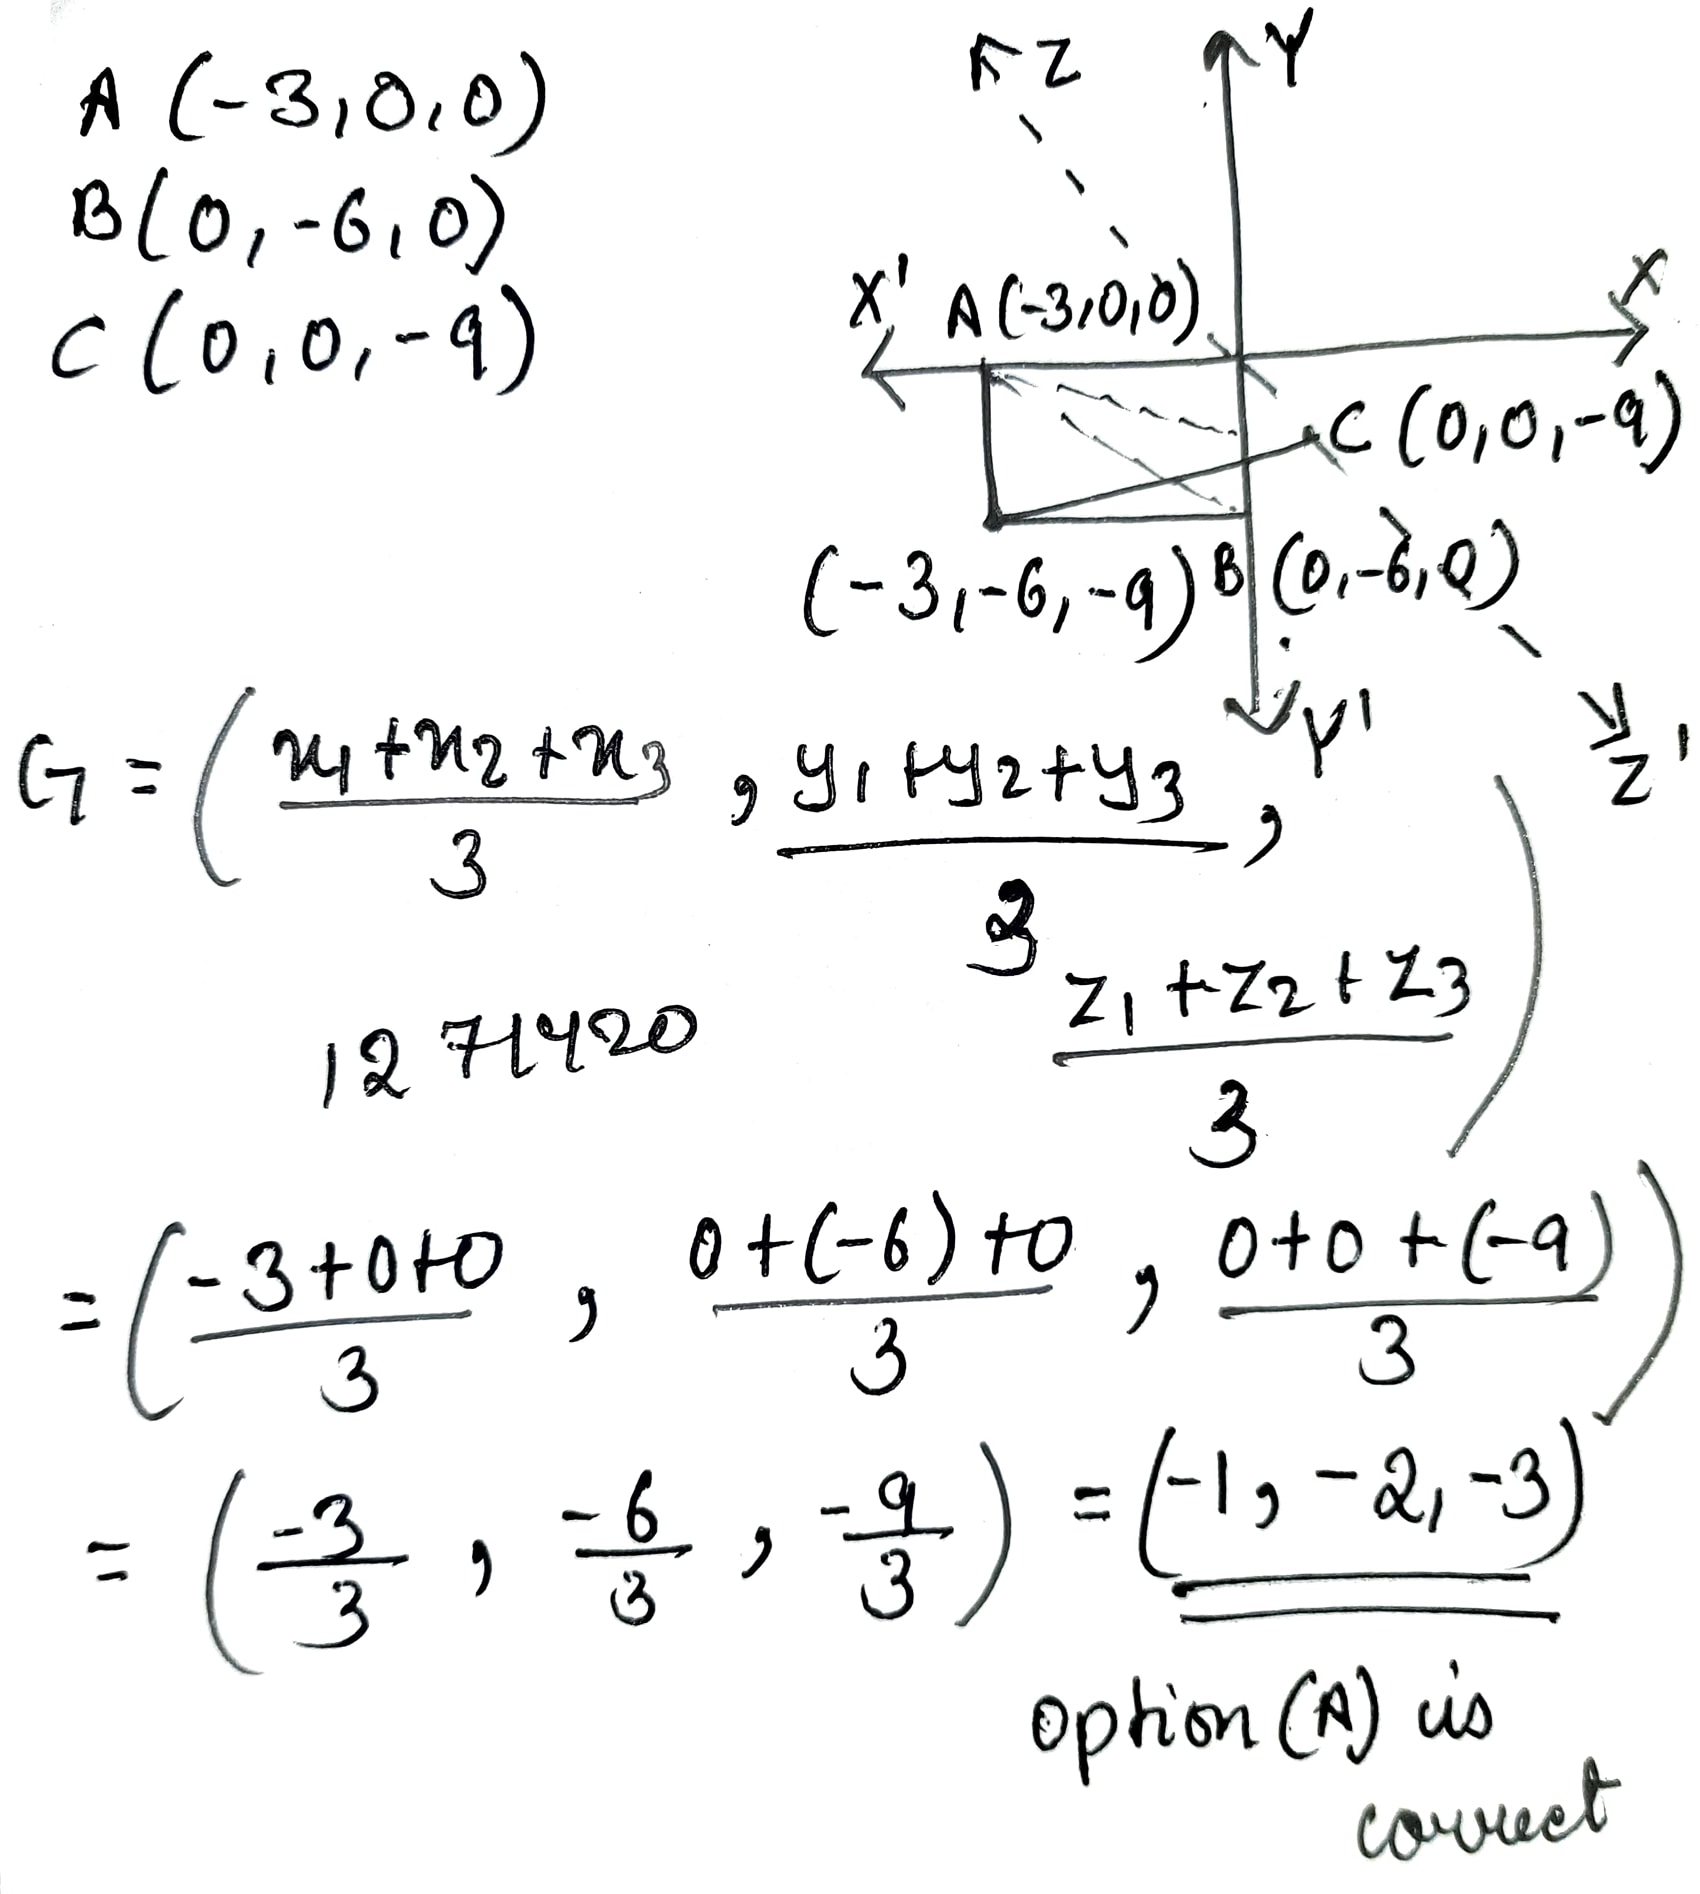 A (-3,0,0)
B(0,-6,0)
C (0,0,-9)
Z
Y
X' A(-3,0,0) X
C (0,0,-9)
(-3,-6,-9) B (0,-6,0)
Y'
Z'
G = ( x1+x2+x3 / 3 , y1+y2+y3 / 3 , z1+z2+z3 / 3 )
1271420
= ( -3+0+0 / 3 , 0+(-6)+0 / 3 , 0+0+(-9) / 3 )
= ( -3/3 , -6/3 , -9/3 ) = (-1, -2, -3)
option (A) is
correct